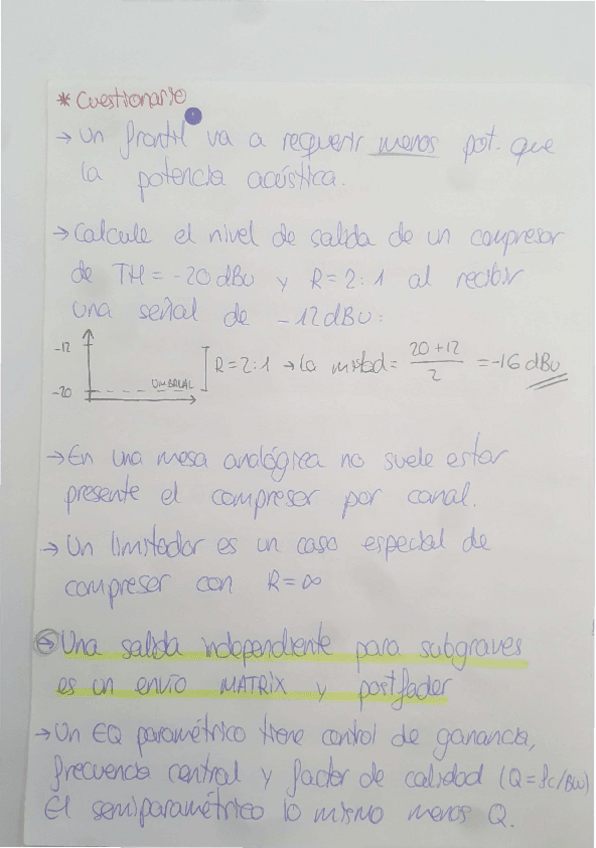 * Cuestionario
→ Un frontfil va a requerir menos pot. que
la potencia acústica.
→ Calcule el nivel de salida de un compresor
de TH = -20 dBu y R = 2:1 al recibir
una señal de -12 dBu:
-12
-20
UMBRAL
R = 2:1 → la mitad = 20 + 12 / 2 = -16 dBu
→ En una mesa analógica no suele estar
presente el compresor por canal.
→ Un limitador es un caso especial de
compresor con R = ∞
→ Una salida independiente para subgraves
es un envío MATRIX y postfader
→ Un EQ paramétrico tiene control de ganancia,
frecuencia central y factor de calidad (Q = fc/BW)
El semiparamétrico lo mismo menos Q.